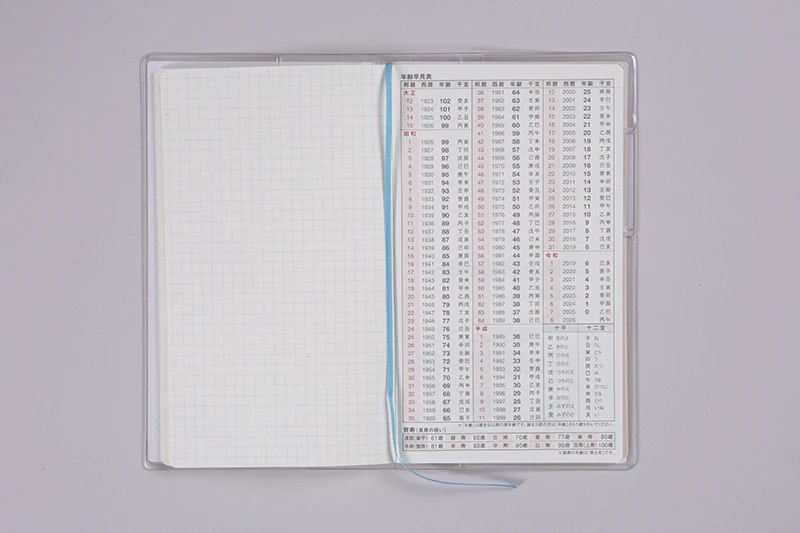 年齢早見表
邦暦 西暦 年齢 干支
大正
12 1923 102 癸亥
13 1924 101 甲子
14 1925 100 乙丑
15 1926 99 丙寅
昭和
1 1926 99 丙寅
2 1927 98 丁卯
3 1928 97 戊辰
4 1929 96 己巳
5 1930 95 庚午
6 1931 94 辛未
7 1932 93 壬申
8 1933 92 癸酉
9 1934 91 甲戌
10 1935 90 乙亥
11 1936 89 丙子
12 1937 88 丁丑
13 1938 87 戊寅
14 1939 86 己卯
15 1940 85 庚辰
16 1941 84 辛巳
17 1942 83 壬午
18 1943 82 癸未
19 1944 81 甲申
20 1945 80 乙酉
21 1946 79 丙戌
22 1947 78 丁亥
23 1948 77 戊子
24 1949 76 己丑
25 1950 75 庚寅
26 1951 74 辛卯
27 1952 73 壬辰
28 1953 72 癸巳
29 1954 71 甲午
30 1955 70 乙未
31 1956 69 丙申
32 1957 68 丁酉
33 1958 67 戊戌
34 1959 66 己亥
35 1960 65 庚子
邦暦 西暦 年齢 干支
36 1961 64 辛丑
37 1962 63 壬寅
38 1963 62 癸卯
39 1964 61 甲辰
40 1965 60 乙巳
41 1966 59 丙午
42 1967 58 丁未
43 1968 57 戊申
44 1969 56 己酉
45 1970 55 庚戌
46 1971 54 辛亥
47 1972 53 壬子
48 1973 52 癸丑
49 1974 51 甲寅
50 1975 50 乙卯
51 1976 49 丙辰
52 1977 48 丁巳
53 1978 47 戊午
54 1979 46 己未
55 1980 45 庚申
56 1981 44 辛酉
57 1982 43 壬戌
58 1983 42 癸亥
59 1984 41 甲子
60 1985 40 乙丑
61 1986 39 丙寅
62 1987 38 丁卯
63 1988 37 戊辰
64 1989 36 己巳
平成
1 1989 36 己巳
2 1990 35 庚午
3 1991 34 辛未
4 1992 33 壬申
5 1993 32 癸酉
6 1994 31 甲戌
7 1995 30 乙亥
8 1996 29 丙子
9 1997 28 丁丑
10 1998 27 戊寅
11 1999 26 己卯
邦暦 西暦 年齢 干支
12 2000 25 庚辰
13 2001 24 辛巳
14 2002 23 壬午
15 2003 22 癸未
16 2004 21 甲申
17 2005 20 乙酉
18 2006 19 丙戌
19 2007 18 丁亥
20 2008 17 戊子
21 2009 16 己丑
22 2010 15 庚寅
23 2011 14 辛卯
24 2012 13 壬辰
25 2013 12 癸巳
26 2014 11 甲午
27 2015 10 乙未
28 2016 9 丙申
29 2017 8 丁酉
30 2018 7 戊戌
31 2019 6 己亥
令和
1 2019 6 己亥
2 2020 5 庚子
3 2021 4 辛丑
4 2022 3 壬寅
5 2023 2 癸卯
6 2024 1 甲辰
7 2025 0 乙巳
8 2026 丙午
十干 十二支
甲 きのえ 子 ね
乙 きのと 丑 うし
丙 ひのえ 寅 とら
丁 ひのと 卯 う
戊 つちのえ 辰 たつ
己 つちのと 巳 み
庚 かのえ 午 うま
辛 かのと 未 ひつじ
壬 みずのえ 申 さる
癸 みずのと 酉 とり
戌 いぬ
亥 い
賀寿(長寿の祝い)
61歳 緑寿 66歳 古稀 70歳 喜寿 77歳 傘寿 80歳
81歳 米寿 88歳 卒寿 90歳 99歳 百寿(上寿) 100歳
※賀寿の年齢は「数え年」です。